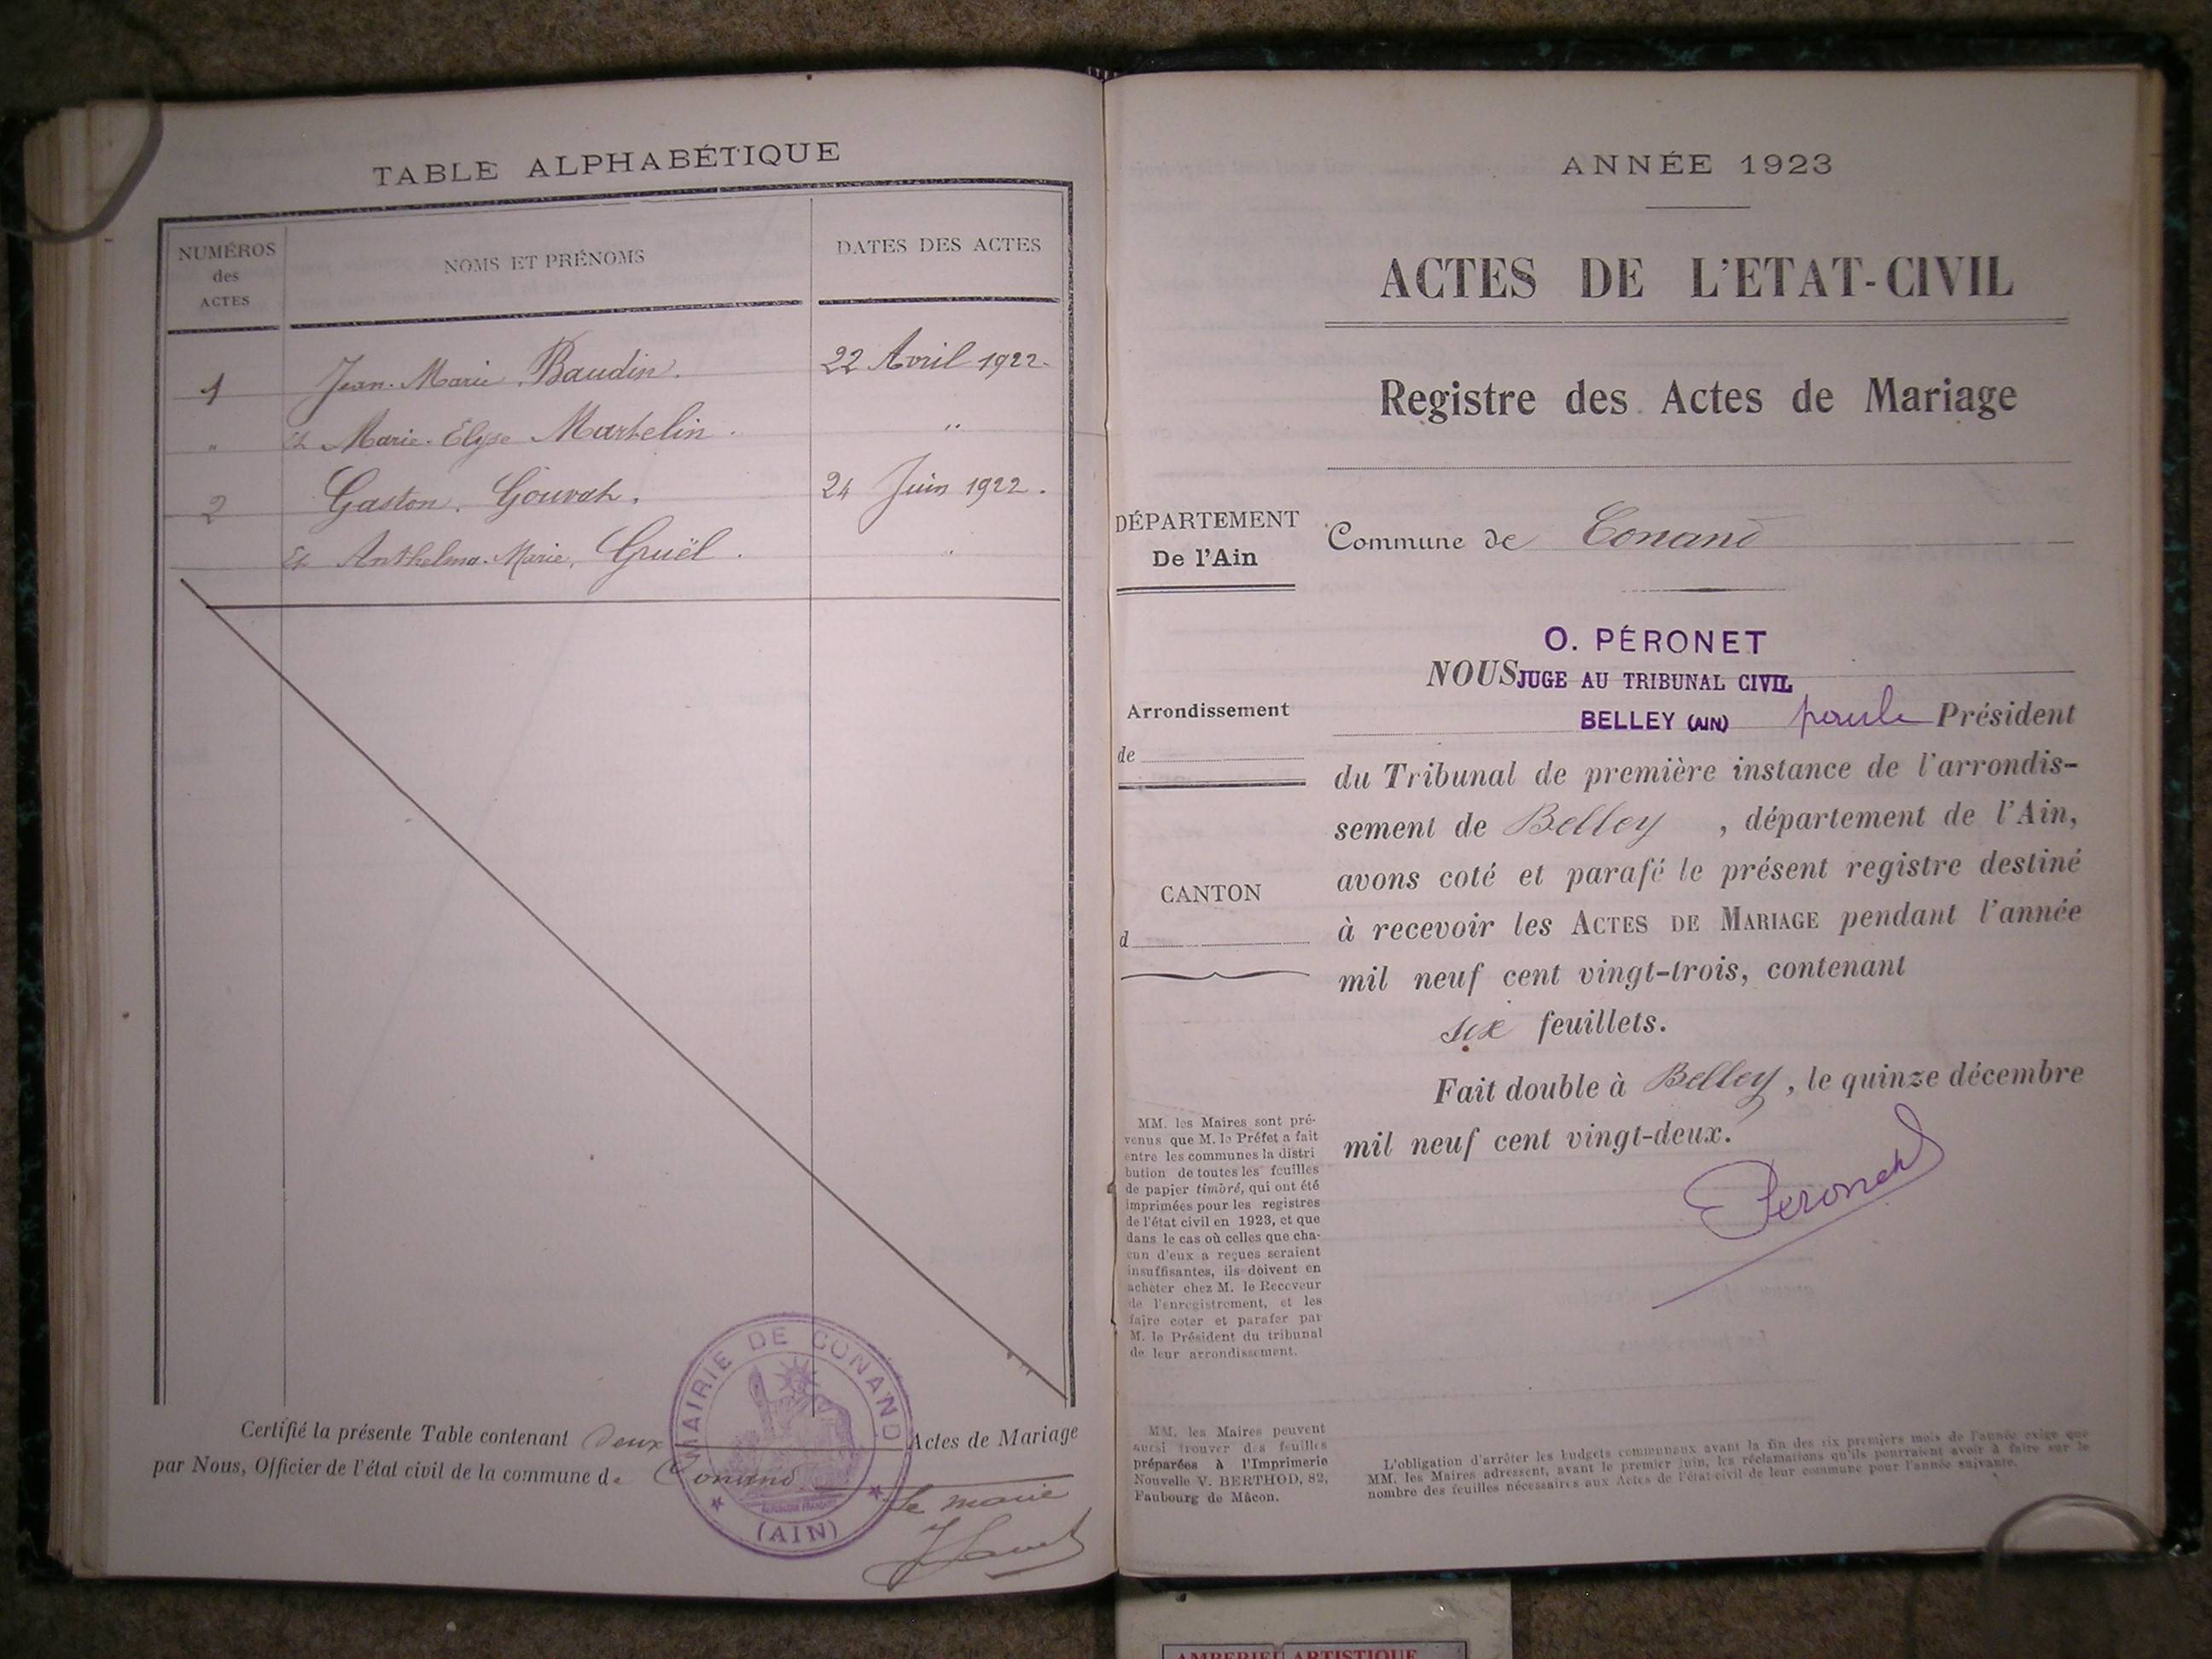 TABLE ALPHABÉTIQUE
NUMÉROS
des
ACTES
NOMS ET PRÉNOMS
DATES DES ACTES
1 Jean-Marie Baudin. 22 Avril 1922.
" et Marie-Elyse Martelin. "
2 Gaston Gouvat. 24 Juin 1922.
Et Anthelma-Marie, Gruël. "
Certifié la présente Table contenant deux Actes de Mariage
par Nous, Officier de l'état civil de la commune de Conand
Le maire
MAIRIE DE CONAND
RÉPUBLIQUE FRANÇAISE
(AIN)
ANNÉE 1923
ACTES DE L'ETAT-CIVIL
Registre des Actes de Mariage
DÉPARTEMENT
De l'Ain
Commune de Conand
O. PÉRONET
NOUS JUGE AU TRIBUNAL CIVIL
BELLEY (AIN) pour le Président
Arrondissement
de
CANTON
d
du Tribunal de première instance de l'arrondis-
sement de Belley, département de l'Ain,
avons coté et parafé le présent registre destiné
à recevoir les ACTES DE MARIAGE pendant l'année
mil neuf cent vingt-trois, contenant
six feuillets.
Fait double à Belley, le quinze décembre
mil neuf cent vingt-deux.
Péronet
MM. les Maires sont pré-
venus que M. le Préfet a fait
entre les communes la distri
bution de toutes les feuilles
de papier timbré, qui ont été
imprimées pour les registres
de l'état civil en 1923, et que
dans le cas où celles que cha-
cun d'eux a reçues seraient
insuffisantes, ils doivent en
acheter chez M. le Receveur
de l'enregistrement, et les
faire coter et parafer par
M. le Président du tribunal
de leur arrondissement.
MM. les Maires peuvent
aussi trouver des feuilles
préparées à l'Imprimerie
Nouvelle V. BERTHOD, 82,
Faubourg de Mâcon.
L'obligation d'arrêter les budgets communaux avant la fin des six premiers mois de l'année exige que
MM. les Maires adressent, avant le premier juin, les réclamations qu'ils pourraient avoir à faire sur le
nombre des feuilles nécessaires aux Actes de l'état-civil de leur commune pour l'année suivante.
AMBERIEU ARTISTIQUE